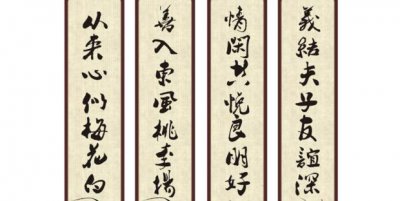 義結夫子友誼深
情閑共悅良朋好
善入東風桃李揚
从来心似梅花白